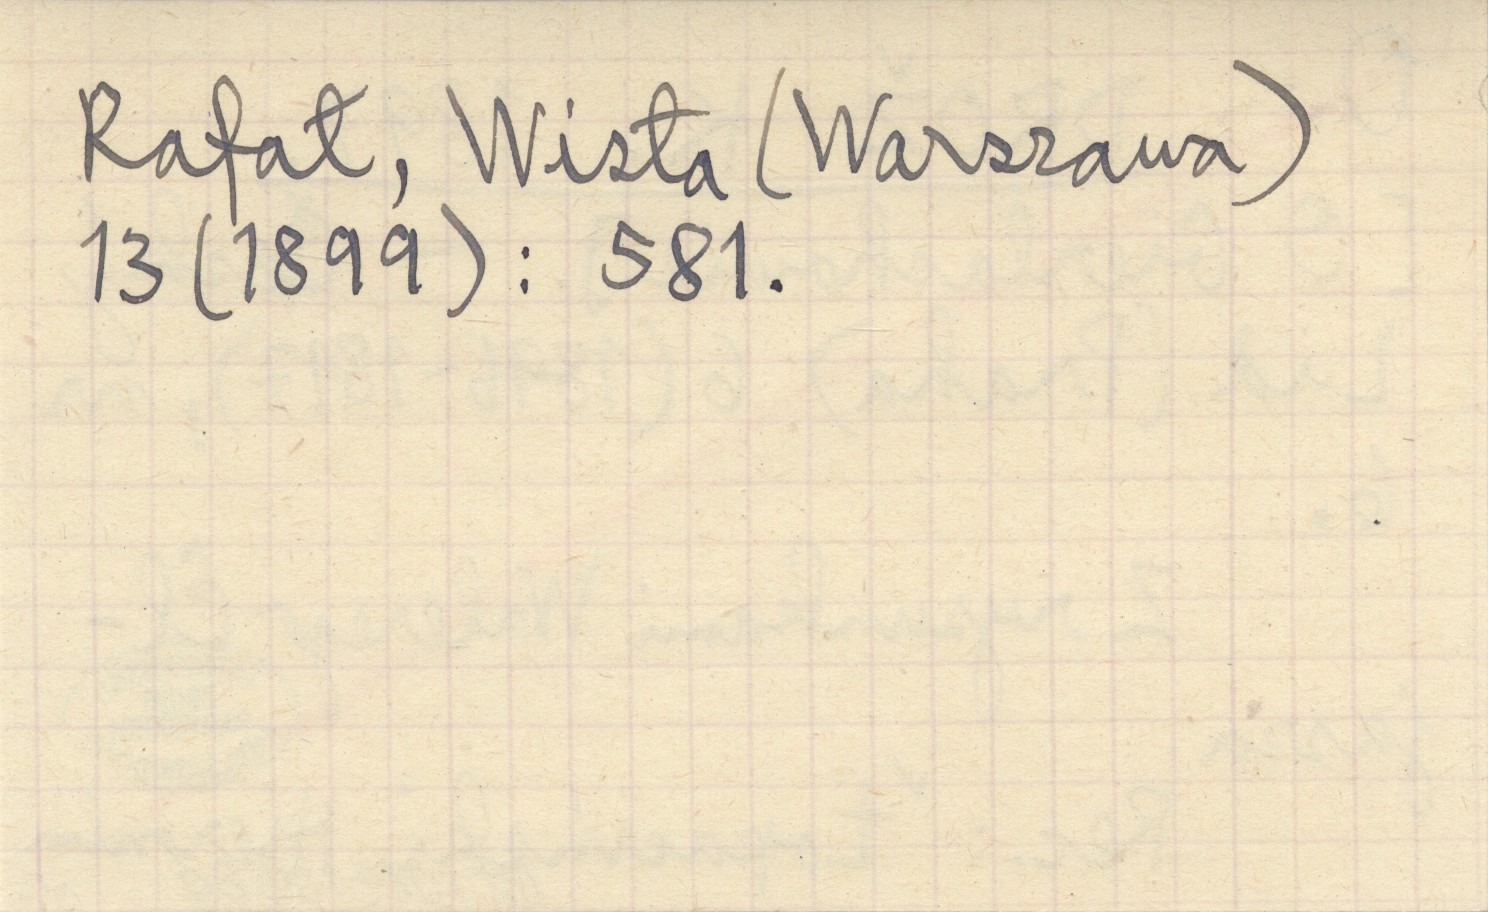 Rafał, Wisła (Warszawa)
13 (1899): 581.